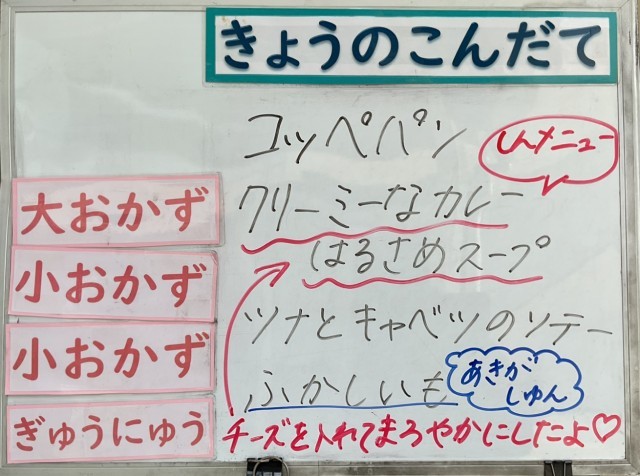 きょうのこんだて
コッペパン
しんメニュー
大おかず
クリーミーなカレー
はるさめスープ
小おかず
ツナとキャベツのソテー
小おかず
ふかしいも
あきが
しゅん
ぎゅうにゅう
チーズを入れてまろやかにしたよ♡